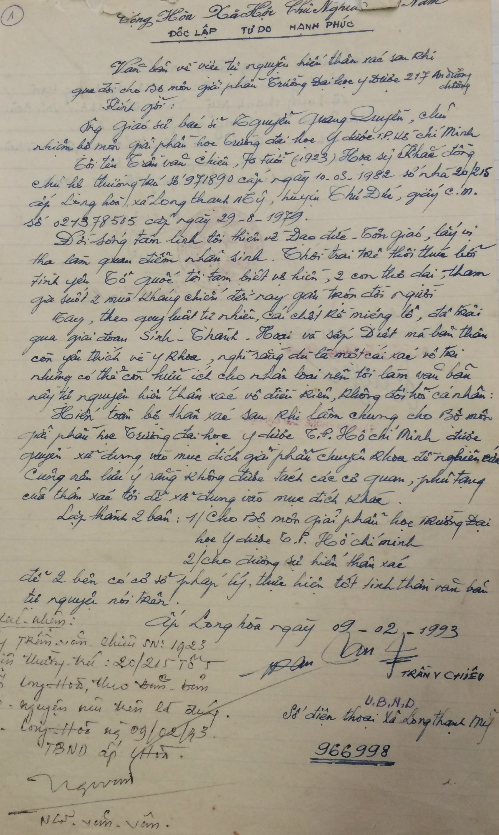 1
Cộng Hòa Xã Hội Chủ Nghĩa Nam
ĐỘC LẬP TỰ DO HẠNH PHÚC
Văn bản về việc tự nguyện hiến thân xác sau khi
qua đời cho Bộ môn giải phẫu Trường Đại học Y Dược 217 An Dương
Vương
Kính gởi:
Ông Giáo sư bác sĩ Nguyễn Quang Quyền, chủ
nhiệm bộ môn giải phẫu học Trường đại học Y dược T.P. Hồ chí Minh
Tôi tên Trần văn Chiêu, 70 tuổi (1923) Họa sĩ,
chủ hộ thường trú số 971890 cấp ngày 10-03-1982 số nhà 20/215
ấp Long hòa, xã Long thạnh Mỹ, huyện Thủ Đức, giấy c.m.
số 021378505 cấp ngày 29-8-1979.
Đời sống tâm linh tôi thiên về Đạo đức - Tôn giáo, lấy vị
tha làm quan điểm nhân sinh. Thời trai trẻ
tình yêu Tổ quốc tôi tạm biệt vợ hiền, 2 con thơ dại, tham
gia suốt 2 mùa kháng chiến đến nay gần tròn đời người.
Nay, theo quy luật tự nhiên, cái chết kề miệng lỗ, đã trải
qua giai đoạn Sinh - Thành - Hoại và sắp Diệt mà bản thân
còn yêu thích về y khoa, nghĩ rằng dù là một cái xác vô tri
nhưng có thể còn hữu ích cho nhân loại nên tôi làm văn bản
này tự nguyện hiến thân xác vô điều kiện, không đòi hỏi cá nhân:
Hiến toàn bộ thân xác sau khi lâm chung cho Bộ môn
giải phẫu học Trường đại học y dược T.P. Hồ chí Minh được
quyền xử dụng vào mục đích giải phẫu chuyên khoa để nghiên cứu
Cũng nên lưu ý rằng không được tách các cơ quan, phủ tạng
của thân xác tôi để xử dụng vào mục đích khác.
Lập thành 2 bản: 1/ cho Bộ môn giải phẫu học trường Đại
học y dược T.P. Hồ chí minh
2/ cho đương sự hiến thân xác
để 2 bên có cơ sở pháp lý, thực hiện tốt tinh thần văn bản
tự nguyện nói trên.
Ấp Long hòa ngày 09-02-1993
TRẦN V CHIÊU
nhận:
Trần-văn-Chiêu SN: 1923
thường trú: 20/215 Tổ 5
Long-Hoà,
nguyện
Long-Hoà ng 09/02/93.
TBND ấp LHoà.
U.B.N.D.
Số điện thoại Xã Long Thạnh Mỹ
966998